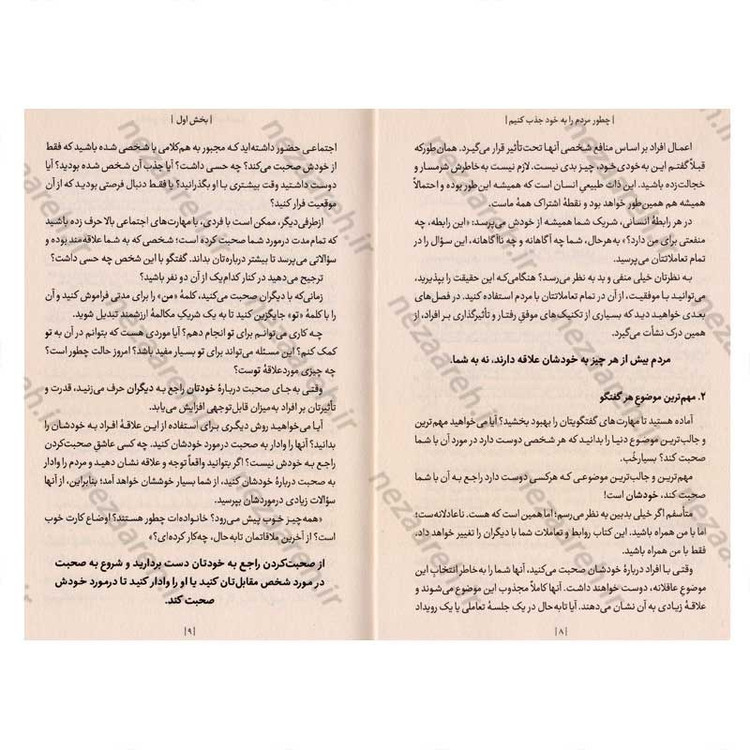 | چطور مردم را به خود جذب کنیم |
اعمال افراد بر اساس منافع شخصی آنها تحت‌تأثیر قرار می‌گیرد. همان‌طورکه
قبلاً گفتم این به‌خودی خود، چیز بدی نیست. لازم نیست به خاطرش شرمسار و
خجالت‌زده باشید. این ذات طبیعیِ انسان است که همیشه این طور بوده و احتمالاً
همیشه هم همین‌طور خواهد بود و نقطهٔ اشتراک همهٔ ماست.
در هر رابطهٔ انسانی، شریک شما همیشه از خودش می‌پرسد: «این رابطه، چه
منفعتی برای من دارد؟» به‌هرحال، شما چه آگاهانه و چه ناآگاهانه، این سؤال را در
تمام تعاملاتتان می‌پرسید.
به نظرتان خیلی منفی و بد به نظر می‌رسد؟ هنگامی‌که این حقیقت را بپذیرید،
می‌توانید با موفقیت، از آن در تمام تعاملاتتان با مردم استفاده کنید. در فصل‌های
بعدی خواهید دید که بسیاری از تکنیک‌های موفقِ رفتار و تأثیرگذاری بر افراد، از
همین درک نشأت می‌گیرد.
مردم بیش از هر چیز به خودشان علاقه دارند، نه به شما.
۲. مهم‌ترین موضوع هر گفتگو
آماده هستید تا مهارت‌های گفتگویتان را بهبود بخشید؟ آیا می‌خواهید مهم‌ترین
و جالب‌ترین موضوع دنیا را بدانید که هر شخصی دوست دارد در مورد آن با شما
صحبت کند؟ بسیارخُب.
مهم‌ترین و جالب‌ترین موضوعی که هرکسی دوست دارد راجع به آن با شما
صحبت کند، خودشان است!
متأسفم اگر خیلی بدبین به نظر می‌رسم؛ اما همین است که هست. ناعادلانه‌ست؛
اما با من همراه باشید. این کتاب روابط و تعاملات شما با دیگران را تغییر خواهد داد،
فقط با من همراه باشید.
وقتی با افراد دربارهٔ خودشان صحبت می‌کنید، آنها شما را به خاطر انتخاب این
موضوعِ عاقلانه، دوست خواهند داشت. آنها کاملاً مجذوب این موضوع می‌شوند و
علاقهٔ زیادی به آن نشان می‌دهند. آیا تا‌به‌حال در یک جلسهٔ تعاملی یا یک رویداد
| ۸ |
| بخش اول |
اجتماعی حضور داشته‌اید که مجبور به هم‌کلامی با شخصی شده باشید که فقط
از خودش صحبت می‌کند؟ چه حسی داشت؟ آیا جذب آن شخص شده بودید؟ آیا
دوست داشتید وقت بیشتری با او بگذرانید؟ یا فقط دنبال فرصتی بودید که از آن
موقعیت فرار کنید؟
ازطرفی‌دیگر، ممکن است با فردی، با مهارت‌های اجتماعی بالا حرف زده باشید
که تمام‌مدت درمورد شما صحبت کرده است؛ شخصی که به شما علاقه‌مند بوده و
سؤالاتی می‌پرسد تا بیشتر درباره‌تان بداند. گفتگو با این شخص چه حسی داشت؟
ترجیح می‌دهید در کنار کدام‌یک از آن دو نفر باشید؟
زمانی‌که با دیگران صحبت می‌کنید، کلمهٔ «من» را برای مدتی فراموش کنید و آن
را با کلمهٔ «تو» جایگزین کنید تا به یک شریکِ مکالمهٔ ارزشمند تبدیل شوید.
چه کاری می‌توانم برای تو انجام دهم؟ آیا موردی هست که بتوانم در آن به تو
کمک کنم؟ این مسئله می‌تواند برای تو بسیار مفید باشد؟ امروز حالت چطور است؟
چه چیزی موردعلاقهٔ توست؟
وقتی به‌جای صحبت دربارهٔ خودتان راجع به دیگران حرف می‌زنید، قدرت و
تأثیرتان بر افراد به‌میزان قابل‌توجهی افزایش می‌یابد.
آیا می‌خواهید روش دیگری برای استفاده از این علاقهٔ افراد به خودشان را
بدانید؟ آنها را وادار به صحبت درمورد خودشان کنید. چه کسی عاشقِ صحبت‌کردن
راجع به خودش نیست؟ اگر بتوانید واقعاً توجه و علاقه نشان دهید و مردم را وادار
به صحبت دربارهٔ خودشان کنید، از شما بسیار خوششان خواهد آمد؛ بنابراین، از آنها
سؤالات زیادی درموردشان بپرسید.
«همه‌چیز خوب پیش می‌رود؟ خانواده‌ات چطور هستند؟ اوضاع کارت خوب
است؟ از آخرین ملاقاتمان تابه‌حال، چه‌کار کرده‌ای؟»
از صحبت‌کردن راجع به خودتان دست بردارید و شروع به صحبت
در مورد شخص مقابل‌تان کنید یا او را وادار کنید تا درمورد خودش
صحبت کند.
| ۹ |
nezaareh.ir